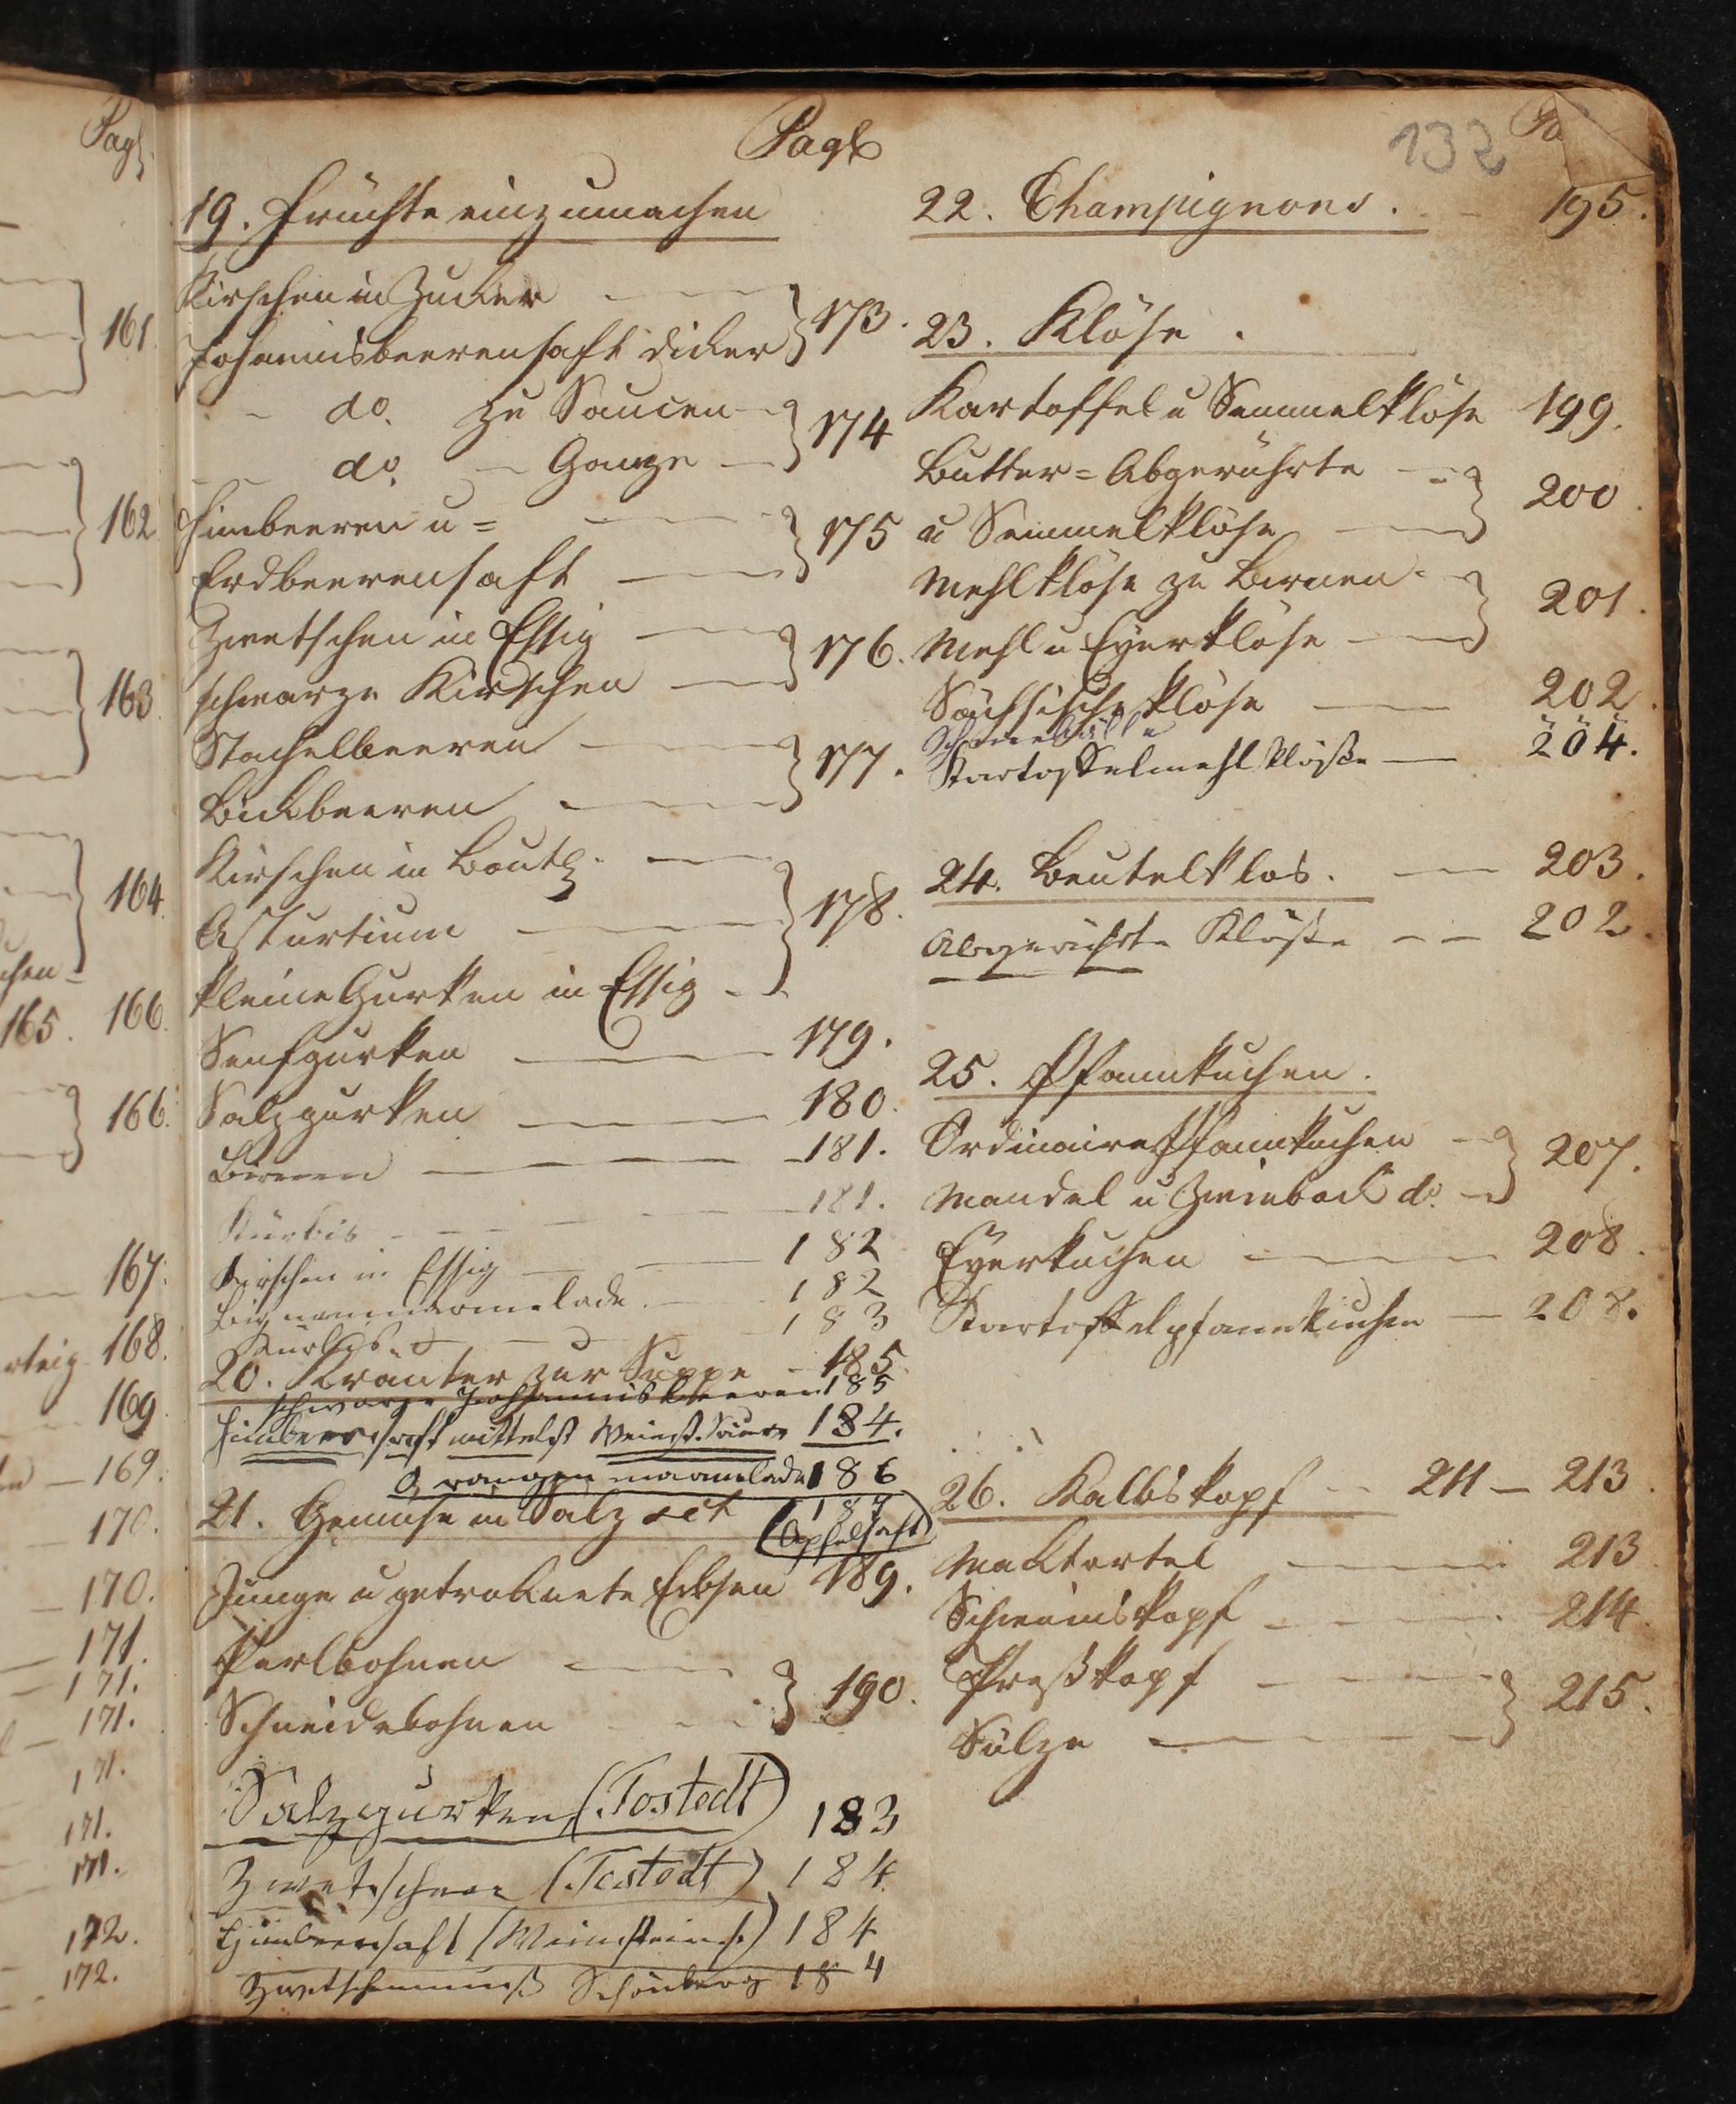 Pag.
161.
162
163.
164.
chen=
165. 166.
166.
167.
168.
169
169.
170.
170.
171.
171.
171.
171.
171.
171.
172.
172.
Page
19. Früchte einzumachen
Kirschen in Zucker
Johannisbeerensaft dicker } 173.
do. zu Saucen
do. — Ganze } 174
Himbeeren u=
Erdbeerensaft } 175
Zwetschen in Essig
schwarze Kirschen } 176.
Stachelbeeren
Bickbeeren } 177.
Kirschen in Bout.
Asturtium
kleine Gurken in Essig } 178.
Senfgurken 179.
Salzgurken 180.
Birnen 181.
Kürbis 181.
Kirschen in Essig 182
182
Kürbis 183
20. Kräuter zur Suppe 185.
schwarze Johannisbeeren 185
Himbeersaft mittelst Weinst. Säure 184.
Orangen marmelade 186
187
21. Gemüse in Salz ect (Apfelsaft)
Junge u getroknete Erbsen 189.
Perlbohnen
Schneidebohnen } 190.
Salzgurken (Tostedt) 183
Zwetschen (Tostedt) 184
Himbeersaft (Weinsteins.) 184
Zwetschenmuß Schönberg 184
132
Pa
22. Champignons. 195.
23. Klöse.
Kartoffel u Semmelklöse 199.
Butter=Abgerührte
u Semmelklöse } 200.
Mehlklöse zu Birnen
Mehl u Eyerklöse } 201.
Sächsische klöse 202.
Kartoffelmehlklöße 204.
24. Beutelklos. 203.
Abgerührte Klöße 202.
25. Pfannkuchen.
Ordinaire Pfannkuchen
Mandel u Zwieback do. } 207.
Eyerkuchen 208.
Kartoffelpfannkuchen 208.
26. Kalbskopf 211 — 213.
Macktortel 213
Schweinskopf 214.
Preßkopf
Sülze } 215.